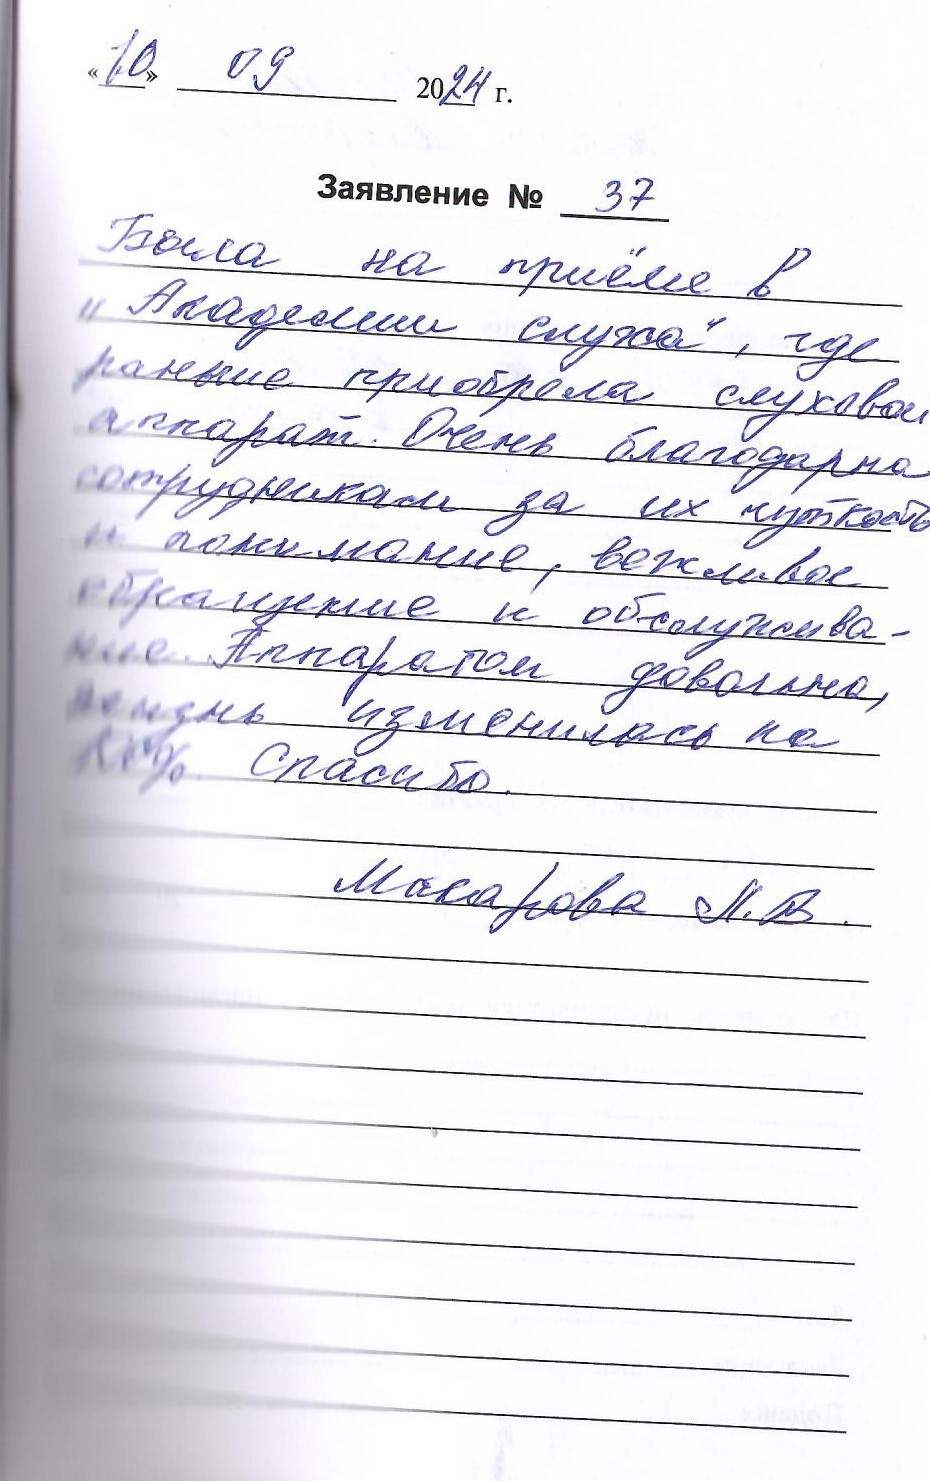 «10» 09 2024 г.
Заявление № 37
Была на приёме в
"Академии слуха", где
раньше приобрела слуховой
аппарат. Очень благодарна
сотрудникам за их чуткость
и понимание, вежливое
обращение и обслужива-
ние. Аппаратом довольна,
жизнь изменилась на
Спасибо.
Макарова Л.В.